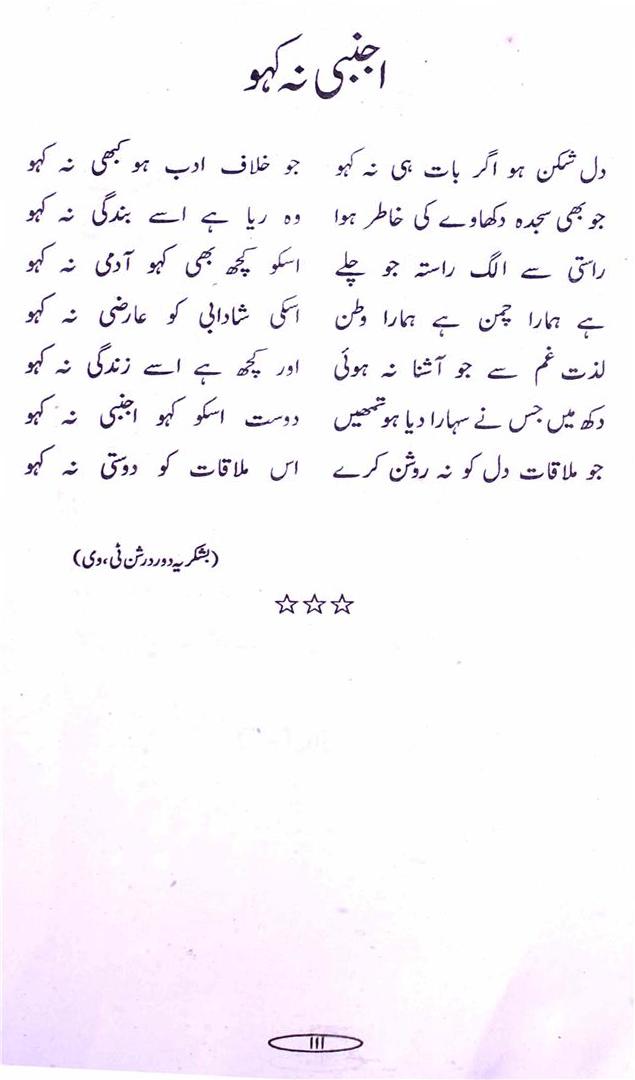 اجنبی نہ کہو
دل شکن ہو اگر بات ہی نہ کہو جو خلاف ادب ہو کبھی نہ کہو
جو بھی سجدہ دکھاوے کی خاطر ہوا وہ ریا ہے اسے بندگی نہ کہو
راستی سے الگ راستہ جو چلے اسکو کچھ بھی کہو آدمی نہ کہو
ہے ہمارا چمن ہے ہمارا وطن اسکی شادابی کو عارضی نہ کہو
لذت غم سے جو آشنا نہ ہوئی اور کچھ ہے اسے زندگی نہ کہو
دکھ میں جس نے سہارا دیا ہو تمھیں دوست اسکو کہو اجنبی نہ کہو
جو ملاقات دل کو نہ روشن کرے اس ملاقات کو دوستی نہ کہو
(بشکریہ دوردرشن ٹی،وی)
☆☆☆
111